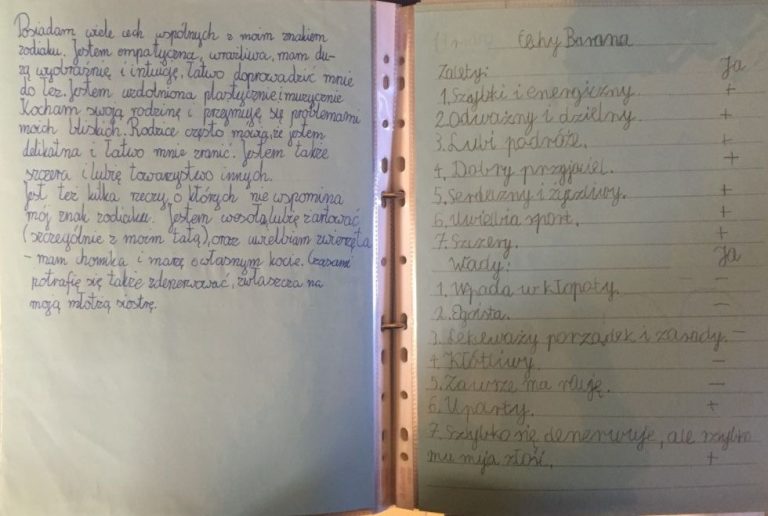 Posiadam wiele cech wspólnych z moim znakiem
zodiaku. Jestem empatyczna, wrażliwa, mam du-
żą wyobraźnię i intuicję, łatwo doprowadzić mnie
do łez. Jestem uzdolniona plastycznie i muzycznie
Kocham swoją rodzinę i przejmuję się problemami
moich bliskich. Rodzice często mówią, że jestem
delikatna i łatwo mnie zranić. Jestem także
szczera i lubię towarzystwo innych.
Jest też kilka rzeczy, o których nie wspomina
mój znak zodiaku. Jestem wesoła, lubię żartować
(szczególnie z moim tatą), oraz uwielbiam zwierzęta
- mam chomika i marzę o własnym kocie. Czasami
potrafię się także zdenerwować, zwłaszcza na
moją młodszą siostrę.
Cechy Barana
Zalety: Ja
1. Szybki i energiczny. +
2. Odważny i dzielny. +
3. Lubi podróże. +
4. Dobry przyjaciel. +
5. Serdeczny i życzliwy. +
6. Uwielbia sport. +
7. Szczery. +
Wady: Ja
1. Wpada w kłopoty. -
2. Egoista. -
3. Lekceważy porządek i zasady. -
4. Kłótliwy. -
5. Zawsze ma rację. -
6. Uparty. +
7. Szybko się denerwuje, ale szybko
mu mija złość. +